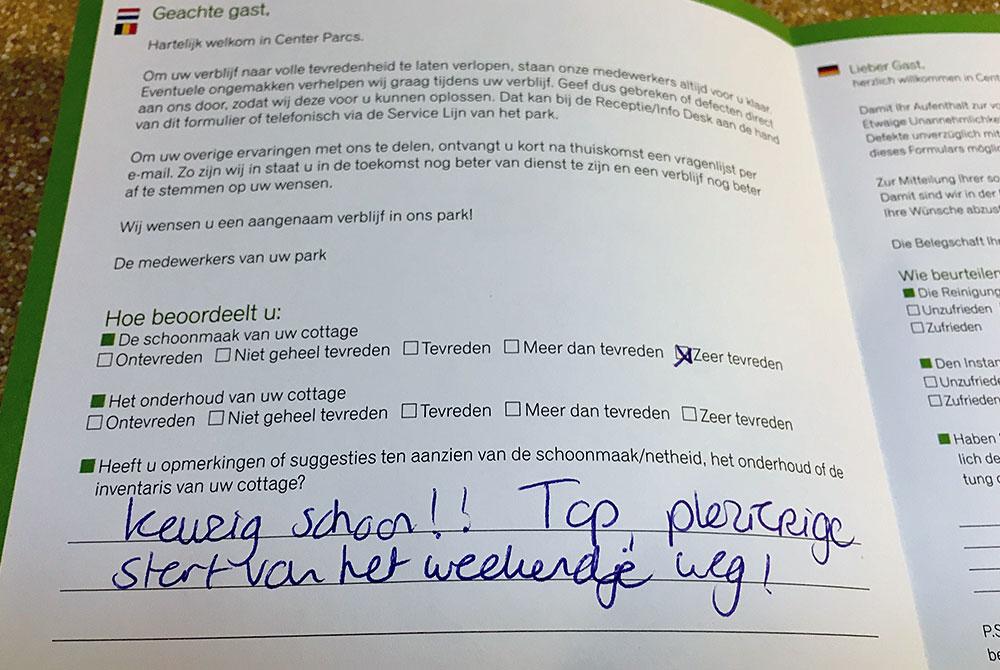 Geachte gast,
Hartelijk welkom in Center Parcs.
Om uw verblijf naar volle tevredenheid te laten verlopen, staan onze medewerkers altijd voor u klaar.
Eventuele ongemakken verhelpen wij graag tijdens uw verblijf. Geef dus gebreken of defecten direct
aan ons door, zodat wij deze voor u kunnen oplossen. Dat kan bij de Receptie/Info Desk aan de hand
van dit formulier of telefonisch via de Service Lijn van het park.
Om uw overige ervaringen met ons te delen, ontvangt u kort na thuiskomst een vragenlijst per
e-mail. Zo zijn wij in staat u in de toekomst nog beter van dienst te zijn en een verblijf nog beter
af te stemmen op uw wensen.
Wij wensen u een aangenaam verblijf in ons park!
De medewerkers van uw park
Hoe beoordeelt u:
De schoonmaak van uw cottage
Ontevreden Niet geheel tevreden Tevreden Meer dan tevreden Zeer tevreden
Het onderhoud van uw cottage
Ontevreden Niet geheel tevreden Tevreden Meer dan tevreden Zeer tevreden
Heeft u opmerkingen of suggesties ten aanzien van de schoonmaak/netheid, het onderhoud of de
inventaris van uw cottage?
keurig schoon!! Top, plezierige
start van het weekendje weg!
Lieber Gast,
herzlich willkommen in Cent
Damit Ihr Aufenthalt zur vo
Etwaige Unannehmlichke
Defekte unverzüglich mit
dieses Formulars möglic
Zur Mitteilung Ihrer so
Damit sind wir in der
Ihre Wünsche abzus
Die Belegschaft Ih
Wie beurteilen
Die Reinigung
Unzufrieden
Zufrieden
Den Instan
Unzufriede
Zufrieden
Haben
lich de
tung
P.S
be